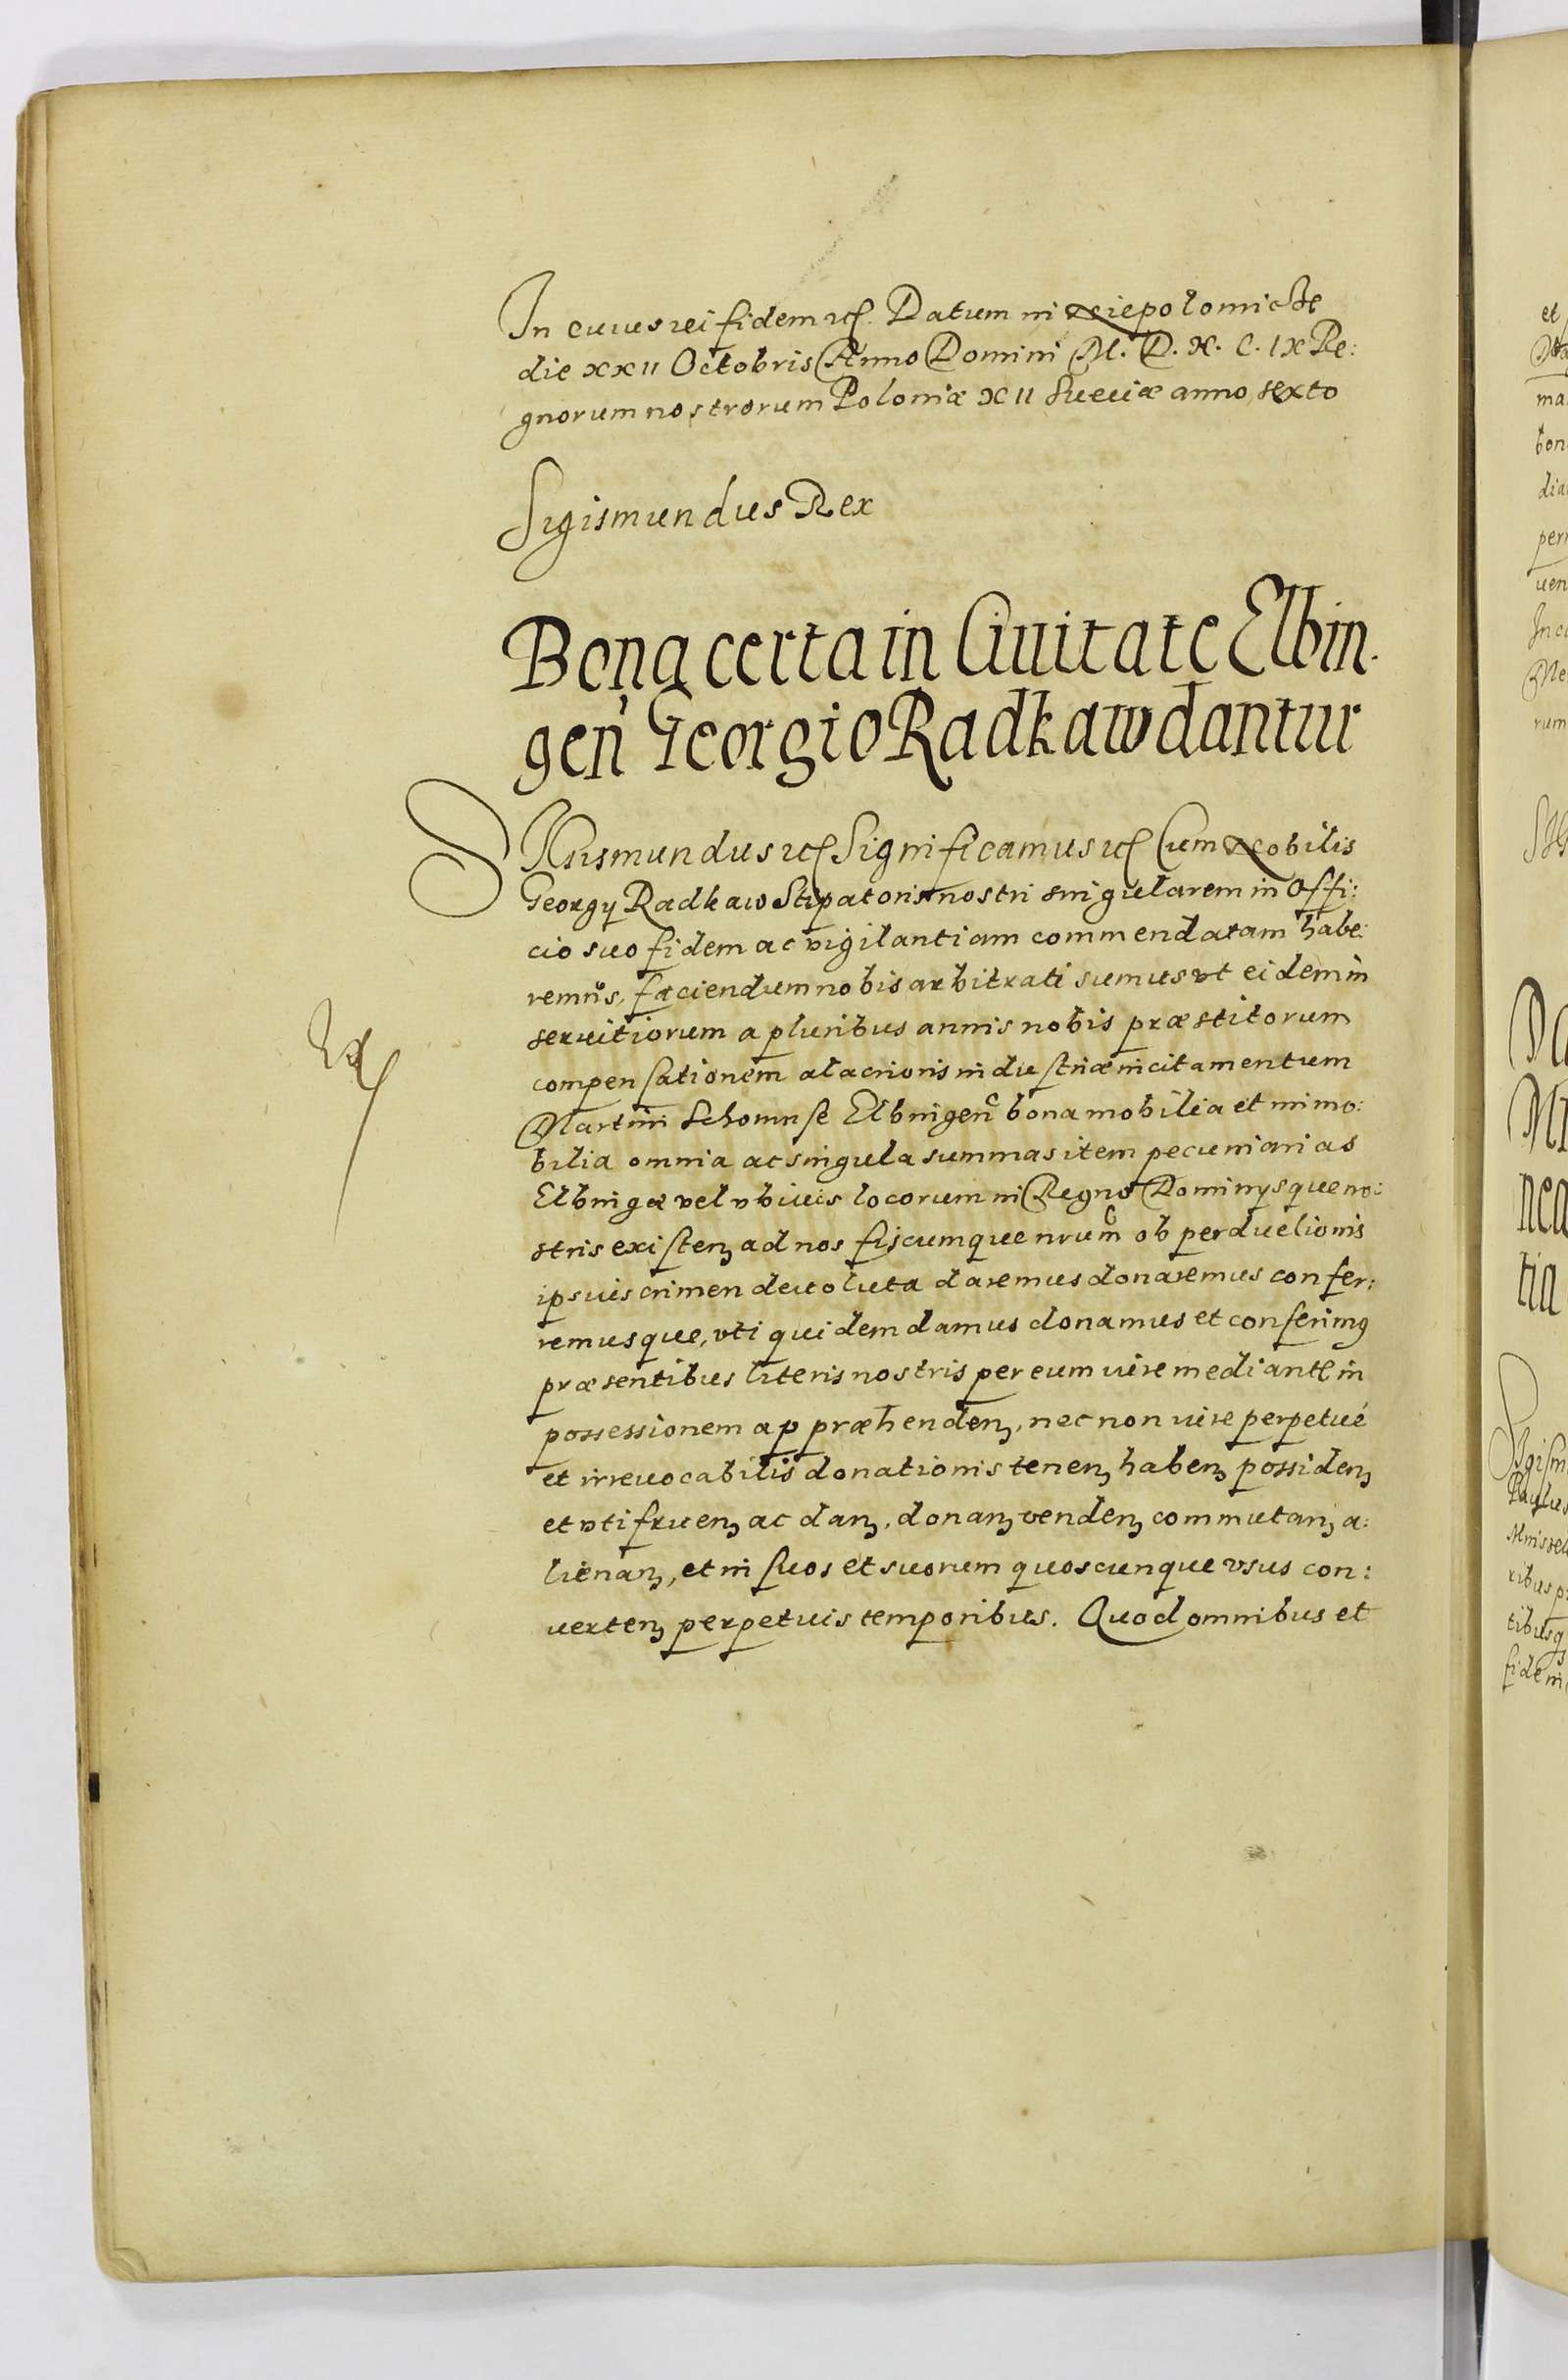 In cuius rei fidem etc. Datum in Niepolomicze
die XXII Octobris Anno Domini M. D. X. C. IX Re:
gnorum nostrorum Poloniæ XII Sueciæ anno sexto
Sigismundus Rex
Bona certa in Ciuitate Elbin.
gen Georgio Radkaw dantur
SIgismundus etc Significamus etc Cum Nobilis
Georgy Radkaw Stipatoris nostri singularem in Offi:
cio suo fidem ac vigilantiam commendatam habe:
remus, faciendum nobis arbitrati sumus vt eidem in
seruitiorum a pluribus annis nobis præstitorum
compensationem alacrioris industriæ incitamentum
Martini Schomse Elbingen bona mobilia et immo:
bilia omnia ac singula summas item pecuniarias
Elbingæ vel vbiuis locorum in Regno Dominysque no:
stris existenz ad nos fiscumque nrum ob perduelionis
ipsius crimen deuoluta daremus donaremus confer:
remusque, vti quidem damus donamus et conferimus
præsentibus literis nostris per eum iure mediante in
possessionem appræhendenz, nec non iure perpetuæ
et irreuocabilis donationis tenenz habenz possidenz
et vtifruenz ac danz, donanz vendenz commutanz a:
lienanz, et in suos et suorum quoscunque vsus con:
uertenz perpetuis temporibus. Quod omnibus et